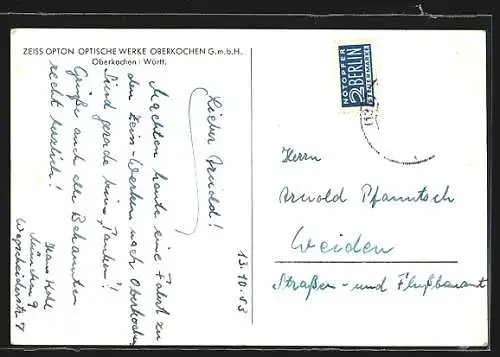 ZEISS OPTON OPTISCHE WERKE OBERKOCHEN G.m.b.H.
Oberkochen / Württ.
13.10.53
Lieber Arnold!
Machten heute eine Fahrt zu
den Zeiss-Werken nach Oberkochen
Sind gerade beim "Tanken"!
Grüße auch alle Bekannten
recht herzlich!
Hans
München 9
Wegscheiderstr. 7
NOTOPFER
2 BERLIN
STEUERMARKE
Herrn
Arnold Pfanntsch
Weiden
Straßen- und Flußbauamt